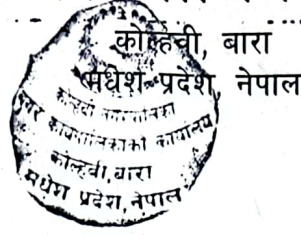 कोल्हवी, बारा
मधेश प्रदेश, नेपाल
कोल्हवी नगरपालिका
नगर कार्यपालिकाको कार्यालय
कोल्हवी, बारा
मधेश प्रदेश, नेपाल